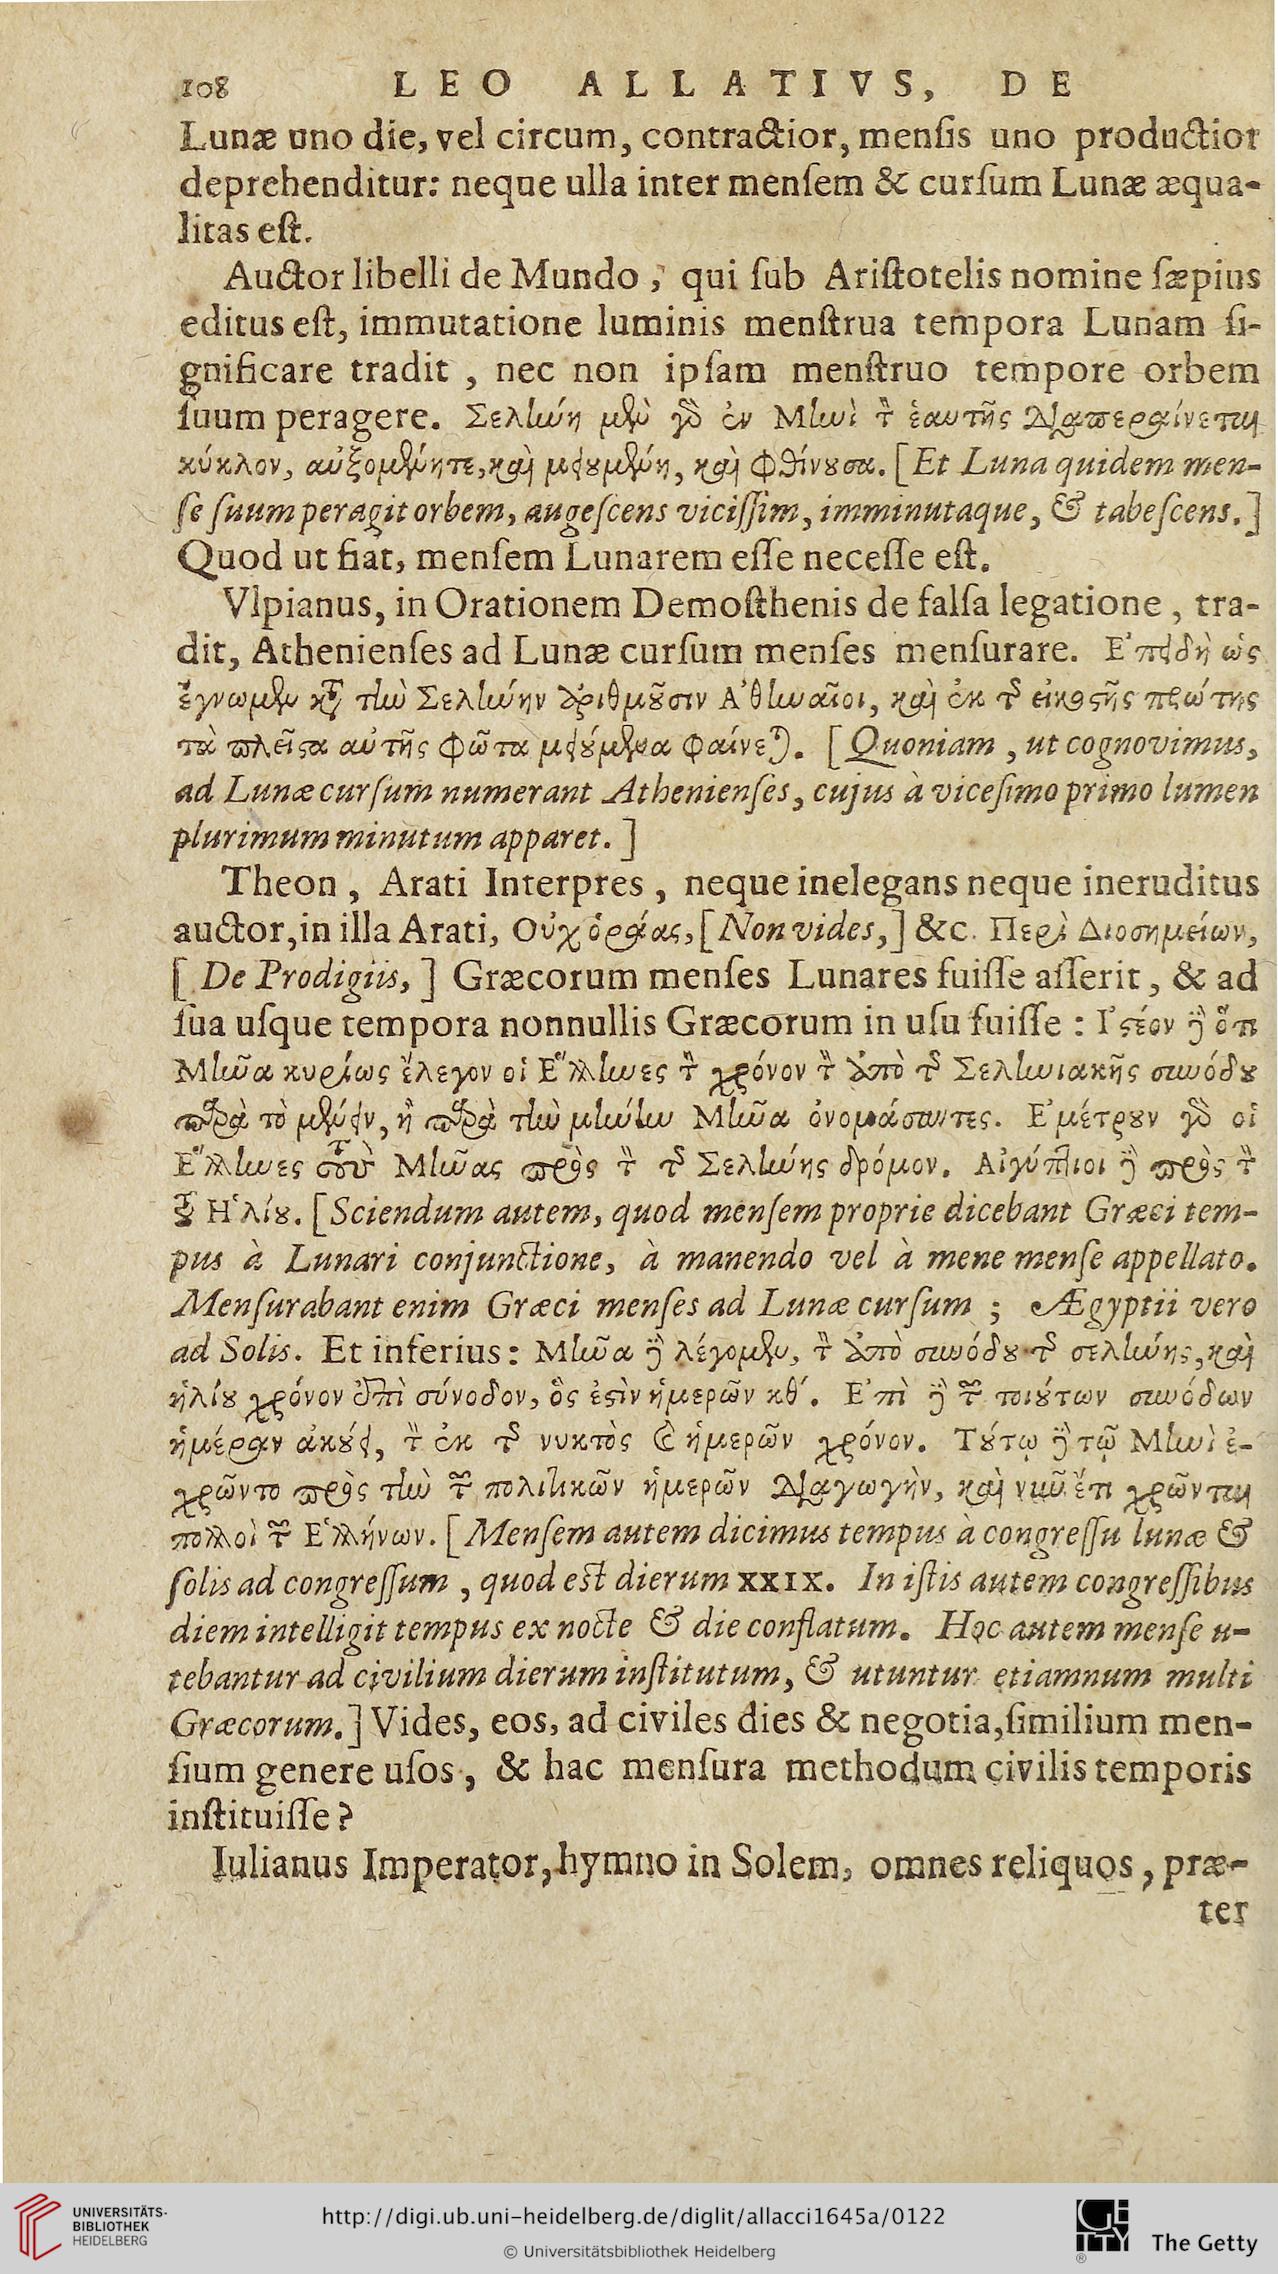 108 LEO ALLATIVS, DE
Lunæ uno die, vel circum, contractior, menſis uno productior
deprehenditur: neque ulla inter menſem & curſum Lunæ æqua-
litas eſt.
Auctor libelli de Mundo, qui ſub Ariſtotelis nomine ſæpius
editus eſt, immutatione luminis menſtrua tempora Lunam ſi-
gnificare tradit, nec non ipſam menſtruo tempore orbem
ſuum peragere. Σελήνη μὲν γὸ ἐν Μηνὶ τ ἑαυτῆς διαπεραίνεται
κύκλον, αὐξομένητε, καὶ μειουμένη, καὶ φθίνουσα. [Et Luna quidem men-
ſe ſuum peragit orbem, augeſcens viciſſim, imminutaque, & tabeſcens.]
Quod ut fiat, menſem Lunarem eſſe neceſſe eſt.
Vlpianus, in Orationem Demoſthenis de falſa legatione, tra-
dit, Athenienſes ad Lunæ curſum menſes menſurare. Ἐπειδὴ ὡς
ἔγνωμεν κτ τὴν Σελήνην ἀριθμοῦσιν Ἀθηναῖοι, καὶ ἐκ τ εἰκοστῆς πρώτης
τὰ πλεῖστα αὐτῆς φῶτα μειούμενα φαίνεται. [Quoniam, ut cognovimus,
ad Lunæ curſum numerant Athenienſes, cujus à viceſimo primo lumen
plurimum minutum apparet.]
Theon, Arati Interpres, neque inelegans neque ineruditus
auctor, in illa Arati, Οὐχ ὁράας, [Non vides,] &c. Περὶ Διοσημείων,
[De Prodigiis,] Græcorum menſes Lunares fuiſſe aſſerit, & ad
ſua uſque tempora nonnullis Græcorum in uſu fuiſſe: Ἰστέον δὲ ὅτι
Μῆνα κυρίως ἔλεγον οἱ Ἕλληνες τ χρόνον τ ἀπὸ τ Σεληνιακῆς συνόδου
παρὰ τὸ μένειν, ἢ παρὰ τὴν μήνην Μῆνα ὀνομάσαντες. Ἐμέτρουν γὸ οἱ
Ἕλληνες τοὺς Μῆνας πρὸς τ τ Σελήνης δρόμον. Αἰγύπτιοι δὲ πρὸς τ
τοῦ Ἡλίου. [Sciendum autem, quod menſem proprie dicebant Græci tem-
pus à Lunari conjunctione, à manendo vel à mene menſe appellato.
Menſurabant enim Græci menſes ad Lunæ curſum; Ægyptii vero
ad Solis. Et inferius: Μῆνα δὲ λέγομεν, τ ἀπὸ συνόδου τ σελήνης, καὶ
ἡλίου χρόνον ἐπὶ σύνοδον, ὅς ἐστὶν ἡμερῶν κθʹ. Ἐπὶ δὲ τ τοιούτων συνόδων
ἡμέραν ἀκούει, τ ἐκ τ νυκτὸς & ἡμερῶν χρόνον. Τούτῳ δὲ τῷ Μηνὶ ἐ-
χρῶντο πρὸς τὴν τ πολιτικῶν ἡμερῶν διαγωγὴν, καὶ νῦν ἔτι χρῶνται
πολλοὶ τ Ἑλλήνων. [Menſem autem dicimus tempus à congreſſu lunæ &
ſolis ad congreſſum, quod eſt dierum XXIX. In iſtis autem congreſſibus
diem intelligit tempus ex nocte & die conflatum. Hoc autem menſe u-
tebantur ad civilium dierum inſtitutum, & utuntur etiamnum multi
Græcorum.] Vides, eos, ad civiles dies & negotia, ſimilium men-
ſium genere uſos, & hac menſura methodum civilis temporis
inſtituiſſe?
Iulianus Imperator, hymno in Solem, omnes reliquos, præ-
ter
UNIVERSITÄTS-
BIBLIOTHEK
HEIDELBERG
http://digi.ub.uni-heidelberg.de/diglit/allacci1645a/0122
© Universitätsbibliothek Heidelberg
GETTY
The Getty